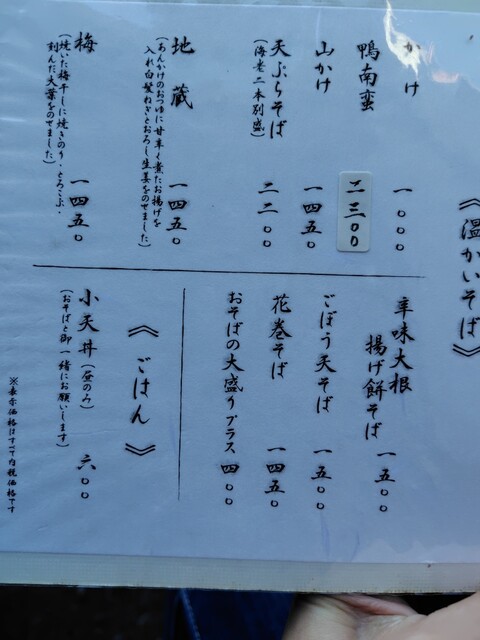 《温かいそば》
かけ 一〇〇〇
鴨南蛮 二三〇〇
山かけ 一四五〇
天ぷらそば 二二〇〇
(海老二本別盛)
地蔵 一四五〇
(あんかけのおつゆに甘辛く煮たお揚げを
入れ白髪ねぎとおろし生姜をのせました)
梅 一四五〇
(焼いた梅干しに焼きのり、とろこぶ、
刻んだ大葉をのせました)
辛味大根
揚げ餅そば 一五〇〇
ごぼう天そば 一五〇〇
花巻そば 一四五〇
おそばの大盛りプラス 四〇〇
《ごはん》
小天丼(昼のみ) 六〇〇
(おそばと御一緒にお願いします)
※表示価格はすべて内税価格です